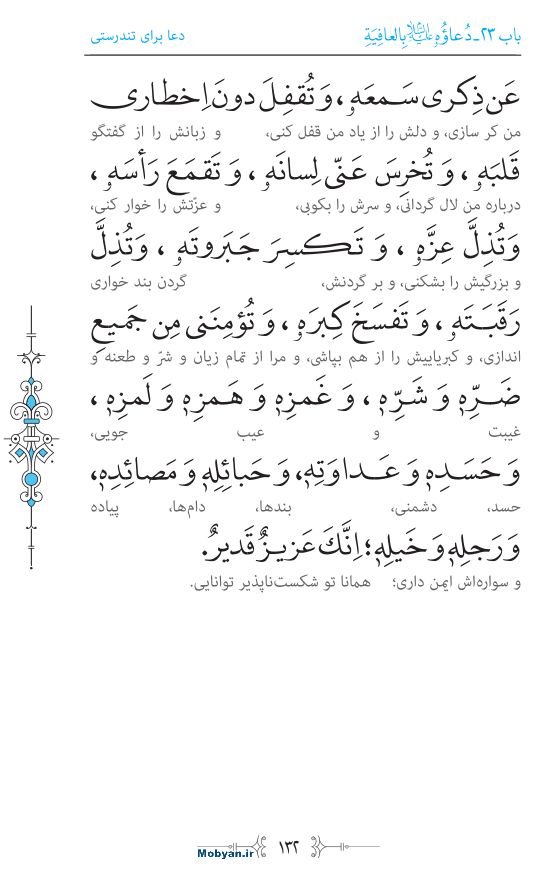 باب ۲۳ـ دُعاؤُهُ علیه‌السلام بِالعافِیَةِ
دعا برای تندرستی
عَن ذِکری سَمعَهُ، وَ تُقفِلَ دونَ اِخطاری
من کر سازی، و دلش را از یاد من قفل کنی، و زبانش را از گفتگو
قَلبَهُ، وَ تُخرِسَ عَنّی لِسانَهُ، وَ تَقمَعَ رَأسَهُ،
درباره من لال گردانی، و سرش را بکوبی، و عزّتش را خوار کنی،
وَتُذِلَّ عِزَّهُ، وَ تَکسِرَ جَبَروتَهُ، وَتُذِلَّ
و بزرگیش را بشکنی، و بر گردنش، گردن بند خواری
رَقَبَتَهُ، وَ تَفسَخَ کِبرَهُ، وَ تُؤمِنَنی مِن جَمیعِ
اندازی، و کبریاییش را از هم بپاشی، و مرا از تمام زیان و شرّ و طعنه و
ضَرِّهِ وَ شَرِّهِ، وَ غَمزِهِ وَ هَمزِهِ وَ لَمزِهِ،
غیبت و عیب جویی،
وَ حَسَدِهِ وَ عَداوَتِهِ، وَ حَبائِلِهِ وَ مَصائِدِهِ،
حسد، دشمنی، بندها، دام‌ها، پیاده
وَ رَجلِهِ وَ خَیلِهِ؛ اِنَّکَ عَزیزٌ قَدیرٌ.
و سواره‌اش ایمن داری؛ همانا تو شکست‌ناپذیر توانایی.
۱۳۲
Mobyan.ir